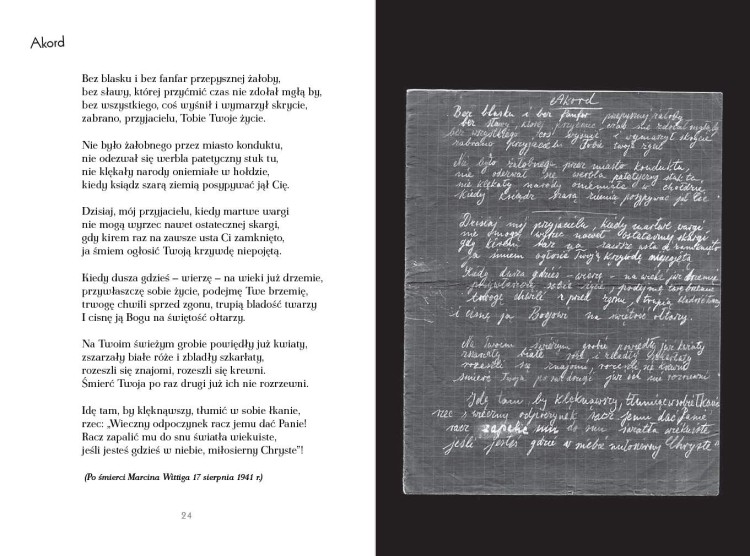 Akord
Bez blasku i bez fanfar przepysznej żałoby,
bez sławy, której przyćmić czas nie zdołał mgłą by,
bez wszystkiego, coś wyśnił i wymarzył skrycie,
zabrano, przyjacielu, Tobie Twoje życie.
Nie było żałobnego przez miasto konduktu,
nie odezwał się werbla patetyczny stuk tu,
nie klękały narody oniemiałe w hołdzie,
kiedy ksiądz szarą ziemią posypywać jął Cię.
Dzisiaj, mój przyjacielu, kiedy martwe wargi
nie mogą wyrzec nawet ostatecznej skargi,
gdy kirem raz na zawsze usta Ci zamknięto,
ja śmiem ogłosić Twoją krzywdę niepojętą.
Kiedy dusza gdzieś – wierzę – na wieki już drzemie,
przywłaszczę sobie życie, podejmę Twe brzemię,
trwogę chwili sprzed zgonu, trupią bladość twarzy
I cisnę ją Bogu na świętość ołtarzy.
Na Twoim świeżym grobie powiędły już kwiaty,
zszarzały białe róże i zbladły szkarłaty,
rozeszli się znajomi, rozeszli się krewni.
Śmierć Twoja po raz drugi już ich nie rozrzewni.
Idę tam, by klęknąwszy, tłumić w sobie łkanie,
rzec: „Wieczny odpoczynek racz jemu dać Panie!
Racz zapalić mu do snu światła wiekuiste,
jeśli jesteś gdzieś w niebie, miłosierny Chryste”!
(Po śmierci Marcina Wittiga 17 sierpnia 1941 r.)
24
Akord
Bez blasku i bez fanfar przepysznej żałoby
bez sławy, której przyćmić czas nie zdołał mgłą by
bez wszystkiego, coś wyśnił i wymarzył skrycie
zabrano przyjacielu Tobie Twoje życie
Nie było żałobnego przez miasto konduktu,
nie odezwał się werbla patetyczny stuk tu,
nie klękały narody oniemiałe w hołdzie,
kiedy ksiądz szarą ziemią posypywać jął Cię
Dzisiaj mój przyjacielu, kiedy martwe wargi
nie mogą wyrzec nawet ostatecznej skargi
gdy kirem raz na zawsze usta Ci zamknięto
ja śmiem ogłosić Twoją krzywdę niepojętą
Kiedy dusza gdzieś - wierzę - na wieki już drzemie
przywłaszczę sobie życie, podejmę Twe brzemię
trwogę chwili sprzed zgonu, trupią bladość twarzy
i cisnę ją Bogowi na świętość ołtarzy.
Na Twoim świeżym grobie powiędły już kwiaty
białe róże i zbladły szkarłaty
rozeszli się znajomi, rozeszli się krewni
śmierć Twoja po raz drugi już ich nie rozrzewni
Idę tam by klęknąwszy, tłumić w sobie łkanie
rzec: wieczny odpoczynek racz jemu dać Panie
racz zapalić mu do snu światła wiekuiste
jeśli jesteś gdzieś w niebie miłosierny Chryste"